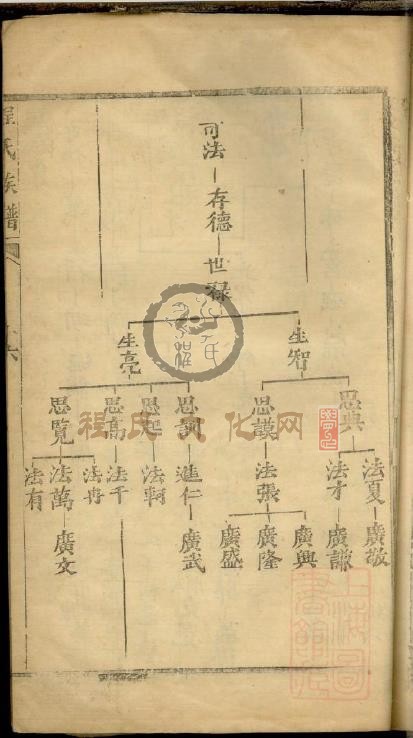 程氏族譜
可法
存德
世祿
生智
生亮
思典
思謨
思訓
思起
思高
思覽
法夏
法才
法張
進仁
法軻
法千
法冉
法萬
法有
廣敬
廣謙
廣興
廣隆
廣盛
廣武
廣文
程氏文化网
上海圖書館藏